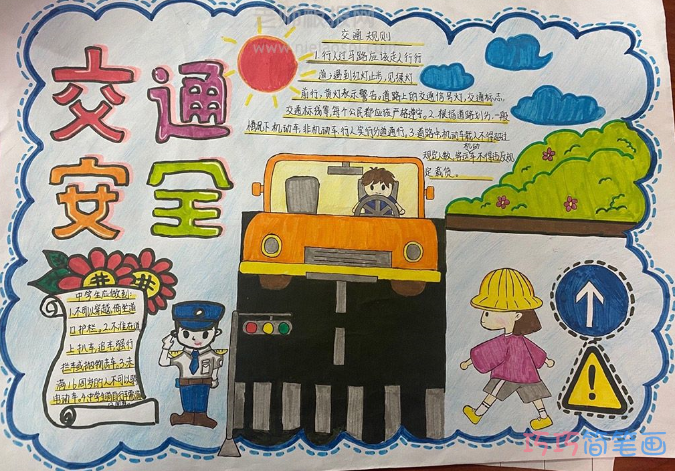 交通
安全
交通规则
1.行人过马路应该走人行行
道,遇到红灯止步,见绿灯
前行,黄灯表示警告,道路上的交通信号灯,交通标志,
交通标线等,每个公民都应该严格遵守。2.根据道路划分,一般
情况下机动车,非机动车,行人实行分道通行,3.道路中机动车载人不得超过
机动
规定人数,货运车不准违反规
定载货。
中学生应做到:
1.不可以穿越,倚坐道
口护栏。2.不准在道
上扒车,追车,强行
拦车或抛物击车3.未
满12周岁的人不可以骑
巧巧简笔画